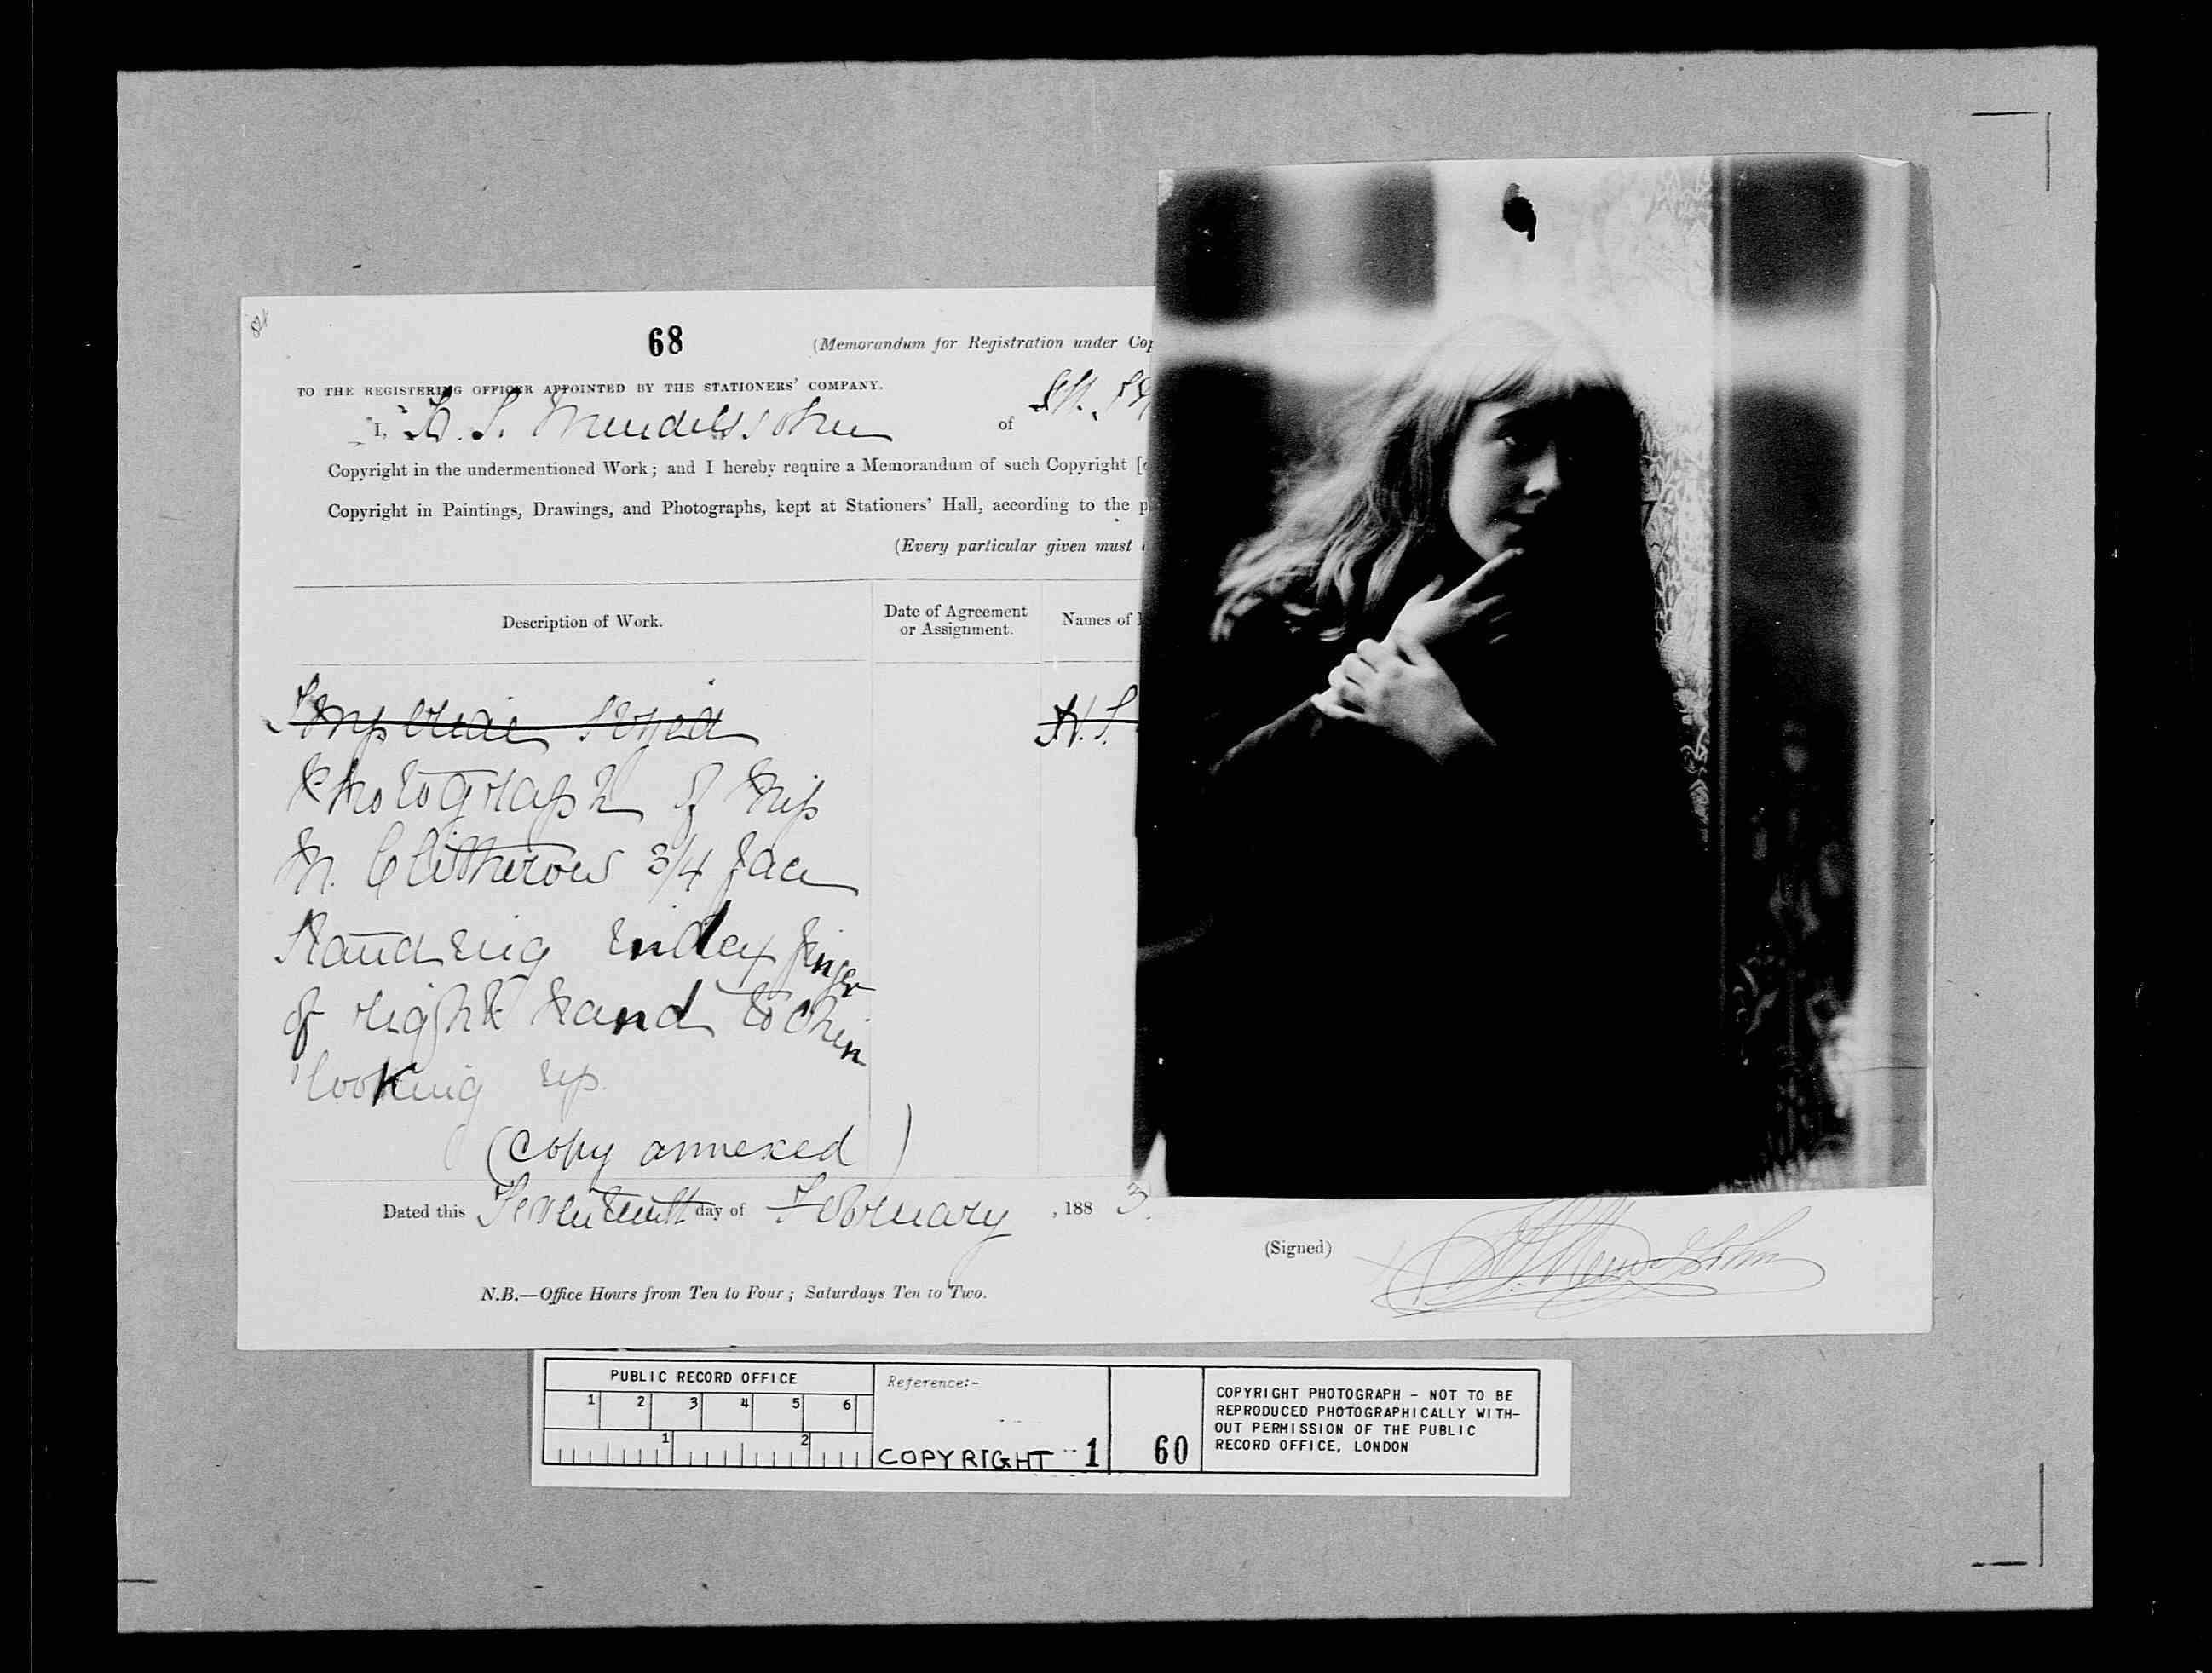 68
(Memorandum for Registration under Cop
TO THE REGISTERING OFFICER APPOINTED BY THE STATIONERS' COMPANY.
I, H. S. Mendelssohn of
Copyright in the undermentioned Work; and I hereby require a Memorandum of such Copyright [
Copyright in Paintings, Drawings, and Photographs, kept at Stationers' Hall, according to the p
(Every particular given must
Description of Work.
Date of Agreement
or Assignment.
Names of
H. S.
Photograph of Miss
N. Clitherow 3/4 face
Standing index finger
of right hand to chin
looking up.
(Copy annexed)
Dated this Seventeenth day of February, 1883.
(Signed) H. S. Mendelssohn
N.B.—Office Hours from Ten to Four; Saturdays Ten to Two.
PUBLIC RECORD OFFICE
1 2 3 4 5 6
1 2
Reference:-
COPYRIGHT 1 60
COPYRIGHT PHOTOGRAPH - NOT TO BE
REPRODUCED PHOTOGRAPHICALLY WITH-
OUT PERMISSION OF THE PUBLIC
RECORD OFFICE, LONDON